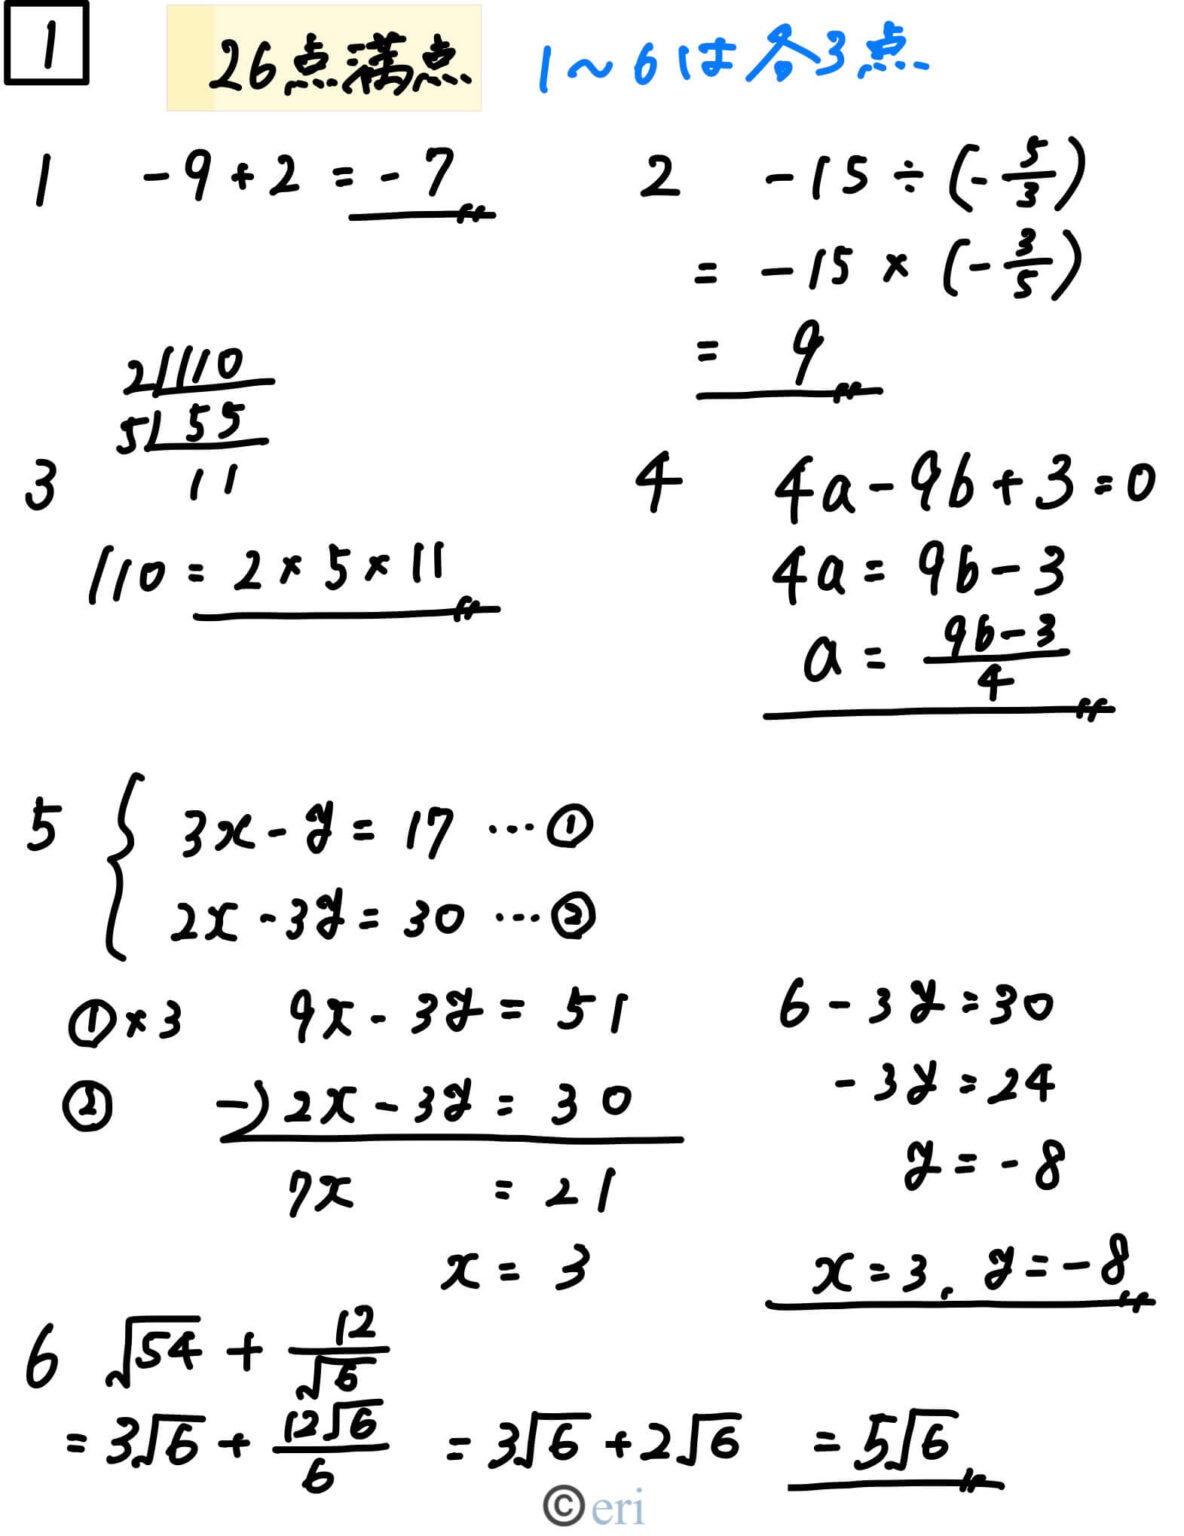 1
26点満点 1~6は各3点
1 -9+2=-7
2 -15÷(-5/3)
=-15×(-3/5)
=9
3
2)110
5)55
11
110=2×5×11
4 4a-9b+3=0
4a=9b-3
a=(9b-3)/4
5 { 3x-y=17 …①
2x-3y=30 …②
①×3 9x-3y=51
② -)2x-3y=30
7x =21
x=3
6-3y=30
-3y=24
y=-8
x=3, y=-8
6 √54+12/√6
=3√6+12√6/6 =3√6+2√6 =5√6
©eri